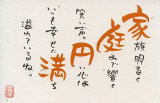 家族明るく
庭より響く
笑い声。円い心は
いつも幸せに満ち
溢れているね。